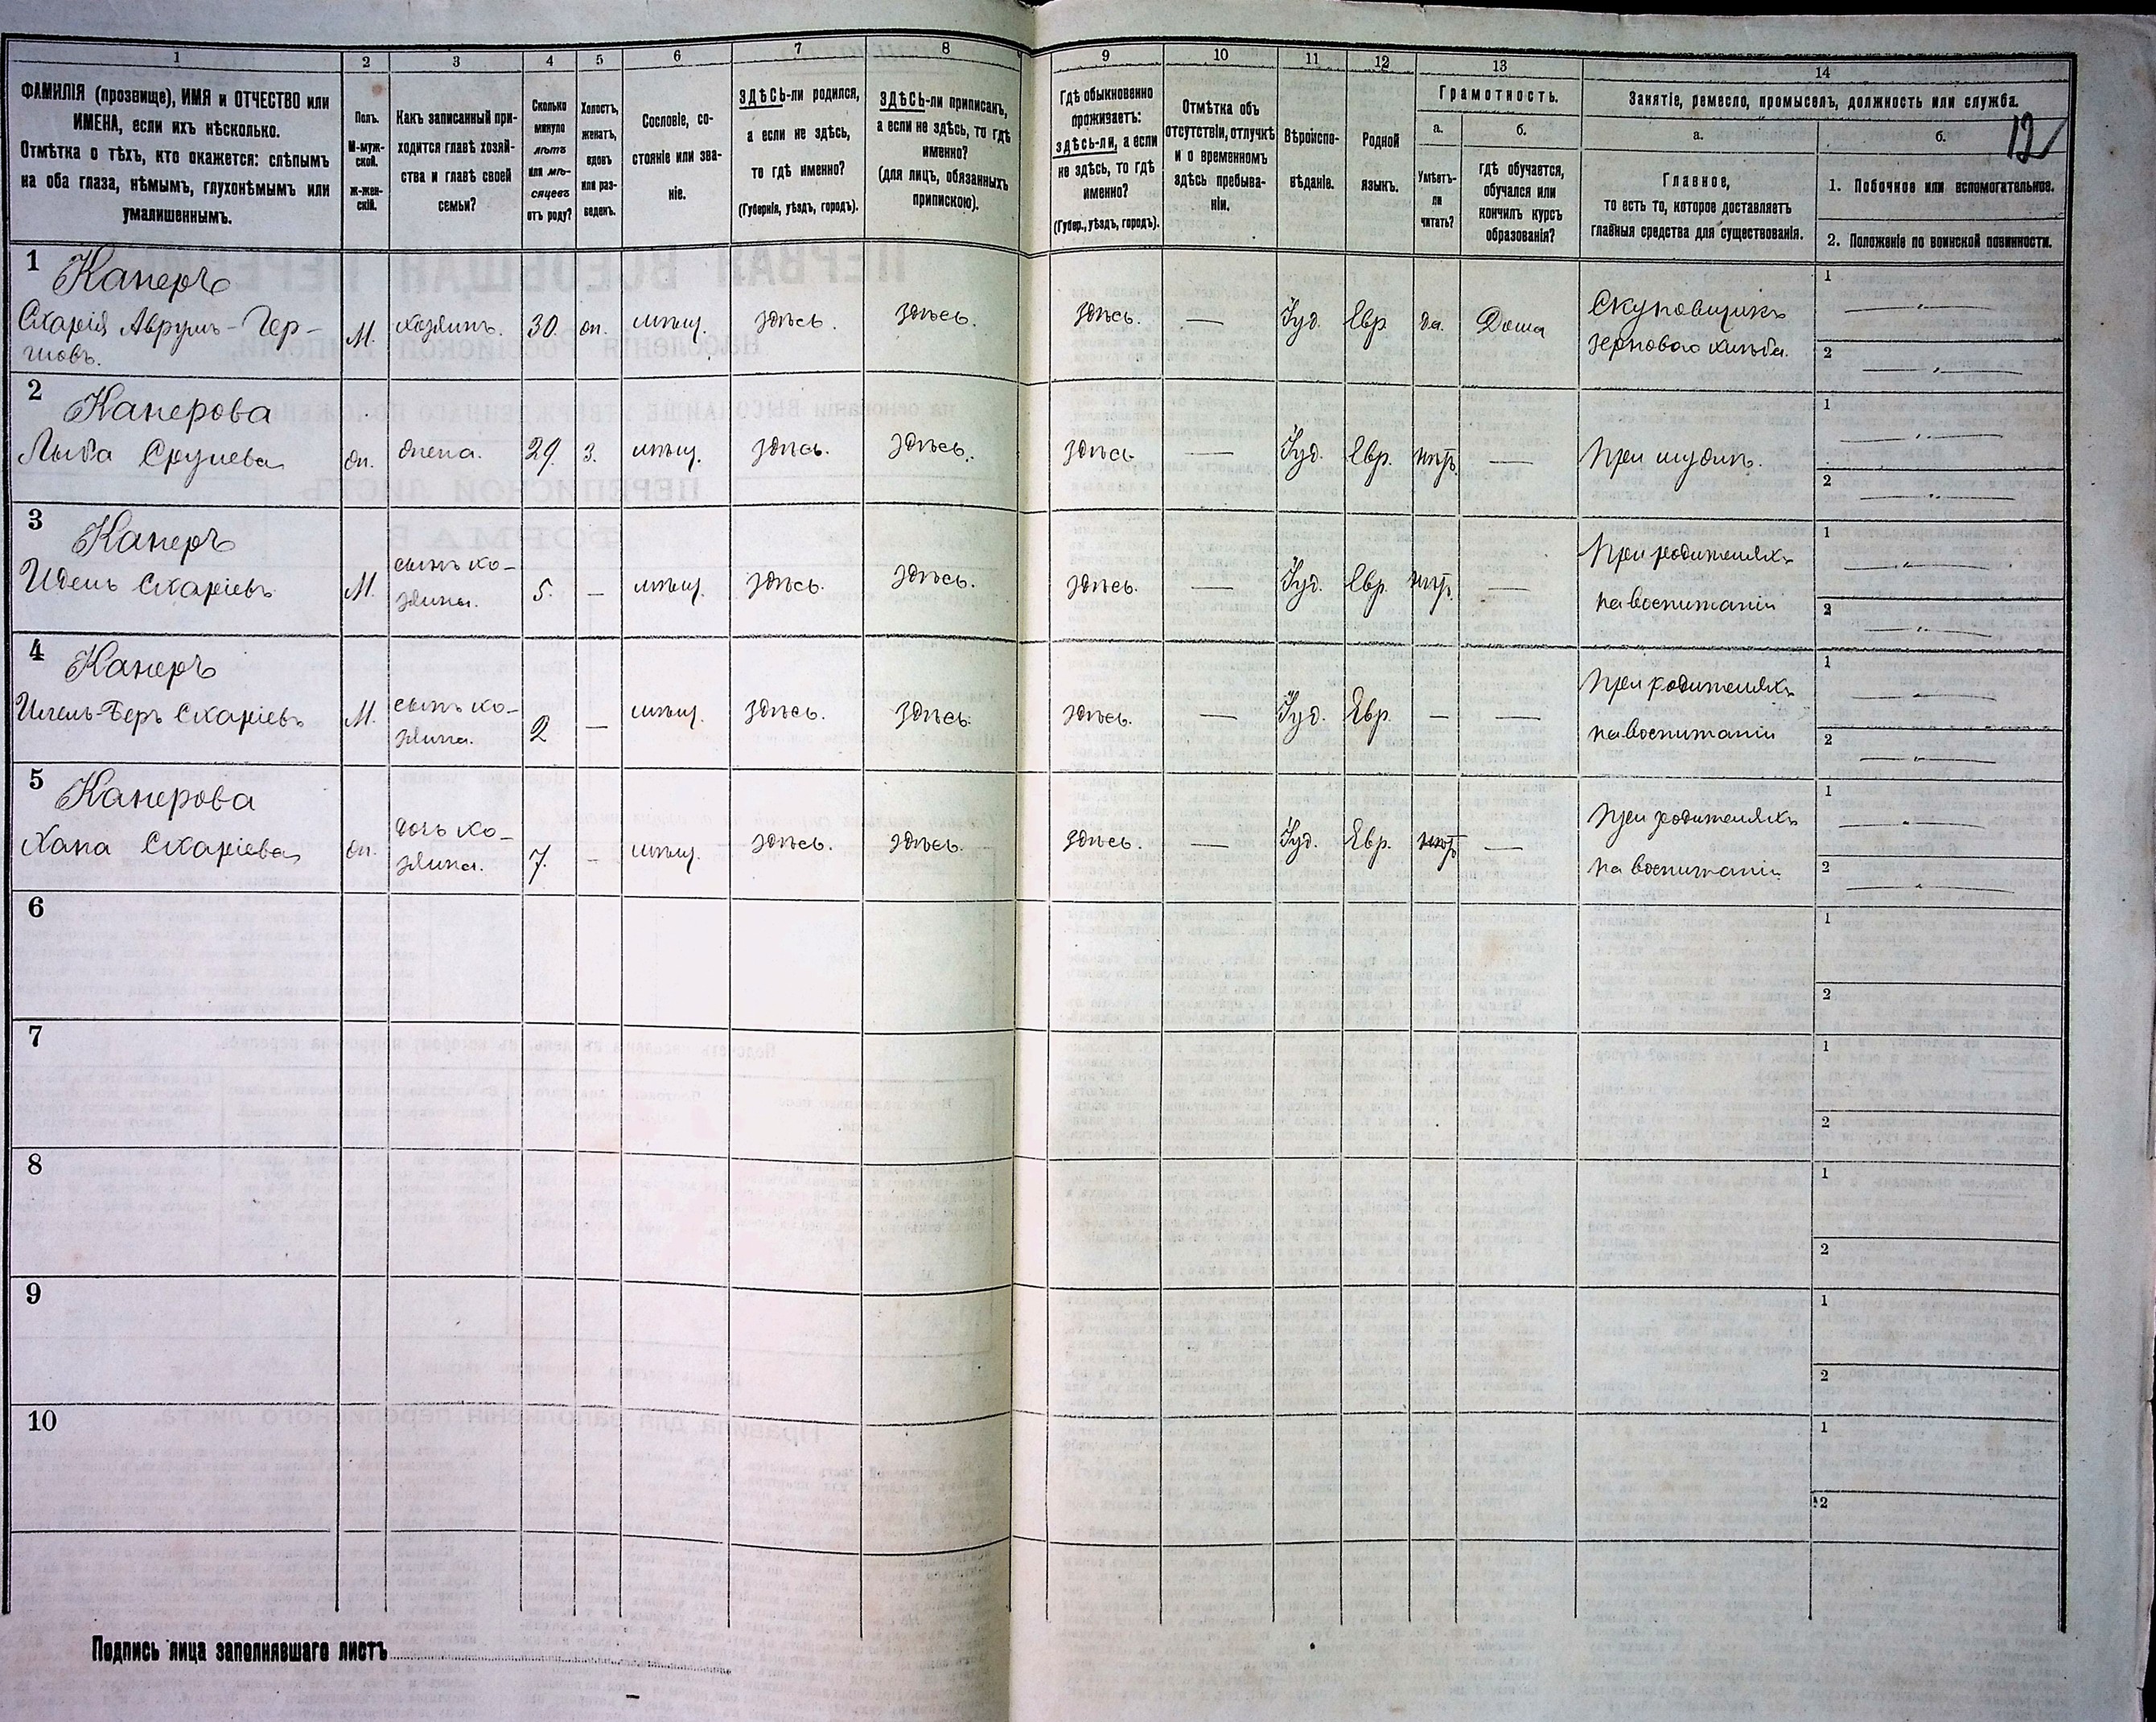 1 2 3 4 5 6 7 8 9 10 11 12 13 14
ФАМИЛІЯ (прозвище), ИМЯ и ОТЧЕСТВО или
ИМЕНА, если ихъ нѣсколько.
Отмѣтка о тѣхъ, кто окажется: слѣпымъ
на оба глаза, нѣмымъ, глухонѣмымъ или
умалишеннымъ.
Полъ.
М-муж-
ской.
Ж-жен-
скій.
Какъ записанный при-
ходится главѣ хозяй-
ства и главѣ своей
семьи?
Сколько
минуло
лѣтъ
или мѣ-
сяцевъ
отъ роду?
Холостъ,
женатъ,
вдовъ
или раз-
веденъ.
Сословіе, со-
стояніе или зва-
ніе.
ЗДѢСЬ-ли родился,
а если не здѣсь,
то гдѣ именно?
(Губернія, уѣздъ, городъ).
ЗДѢСЬ-ли приписанъ,
а если не здѣсь, то гдѣ
именно?
(для лицъ, обязанныхъ
припискою).
Гдѣ обыкновенно
проживаетъ:
здѣсь-ли, а если
не здѣсь, то гдѣ
именно?
(Губер., уѣздъ, городъ).
Отмѣтка объ
отсутствіи, отлучкѣ
и о временномъ
здѣсь пребыва-
ніи.
Вѣроиспо-
вѣданіе.
Родной
языкъ.
Грамотность.
а.
Умѣетъ-
ли
читать?
б.
гдѣ обучается,
обучался или
кончилъ курсъ
образованія?
Занятіе, ремесло, промыселъ, должность или служба.
12
а.
Главное,
то есть то, которое доставляетъ
главныя средства для существованія.
б.
1. Побочное или вспомогательное.
2. Положеніе по воинской повинности.
1 Канеръ
Схарія Аврумъ-Гер-
шовъ. М. хозяинъ. 30. жн. мѣщ. здѣсь. здѣсь. здѣсь. — Іуд. Евр. да. Дома
Скуповщикъ
зерноваго хлѣба.
1 — " —
2 — " —
2 Канерова
Лыба Срулева жн. жена. 29. З. мѣщ. здѣсь. здѣсь. здѣсь — Іуд. Евр. нѣтъ. — При мужѣ.
1 — " —
2 — " —
3 Канеръ
Идель Схаріевъ М. сынъ хо-
зяина. 5. — мѣщ. здѣсь. здѣсь. здѣсь. — Іуд. Евр. нѣтъ. —
При родителяхъ
на воспитаніи
1 — " —
2 — " —
4 Канеръ
-Беръ Схаріевъ М. сынъ хо-
зяина. 2 — мѣщ. здѣсь. здѣсь. здѣсь. — Іуд. Евр. — —
При родителяхъ
на воспитаніи
1 — " —
2 — " —
5 Канерова
Хана Схаріева жн. дочь хо-
зяина. 7. — мѣщ. здѣсь. здѣсь. здѣсь. — Іуд. Евр. нѣтъ —
При родителяхъ
на воспитаніи
1 — " —
2 — " —
6
1
2
7
1
2
8
1
2
9
1
2
10
1
2
Подпись лица заполнявшаго листъ